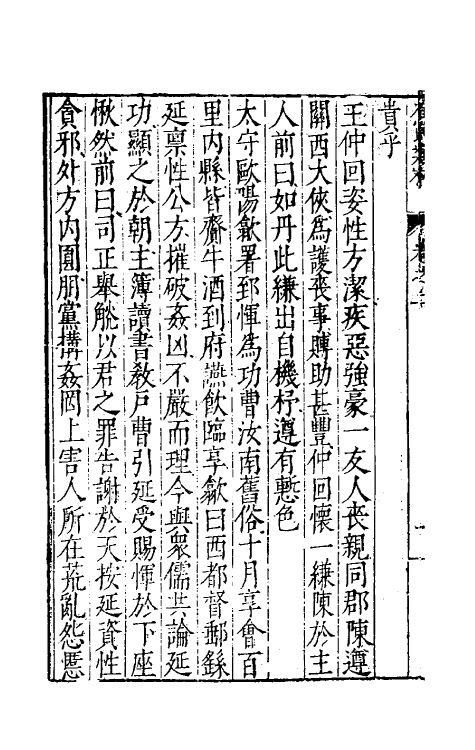 貴乎
王仲回姿性方潔疾惡強豪一友人喪親同郡陳遵
關西大俠為護喪事賻助甚豐仲回懷一縑陳於主
人前曰如丹此縑出自機杼遵有慙色
太守歐陽歙署郅惲為功曹汝南舊俗十月享會百
里内縣皆齎牛酒到府讌飲臨享歙曰西都督郵繇
延禀性公方摧破姦凶不嚴而理今與衆儒共論延
功顯之於朝主簿讀書教戶曹引延受賜惲於下座
愀然前曰司正舉觥以君之罪告謝於天按延資性
貪邪外方内圓朋黨搆姦罔上害人所在荒亂怨慝